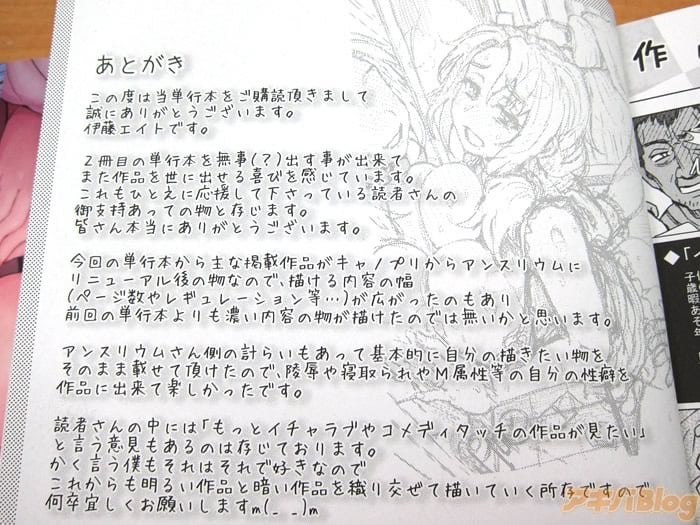 あとがき
この度は当単行本をご購読頂きまして
誠にありがとうございます。
伊藤エイトです。
２冊目の単行本を無事(？)出す事が出来て
また作品を世に出せる喜びを感じています。
これもひとえに応援して下さっている読者さんの
御支持あっての物と存じます。
皆さん本当にありがとうございます。
今回の単行本から主な掲載作品がキャノプリからアンスリウムに
リニューアル後の物なので、描ける内容の幅
(ページ数やレギュレーション等…)が広がったのもあり
前回の単行本よりも濃い内容の物が描けたのでは無いかと思います。
アンスリウムさん側の計らいもあって基本的に自分の描きたい物を
そのまま載せて頂けたので、陵辱や寝取られやM属性等の自分の性癖を
作品に出来て楽しかったです。
読者さんの中には「もっとイチャラブやコメディタッチの作品が見たい」
と言う意見もあるのは存じております。
かく言う僕もそれはそれで好きなので
これからも明るい作品と暗い作品を織り交ぜて描いていく所存ですので
何卒宜しくお願いしますm(_ _)m
作
アキバBlog